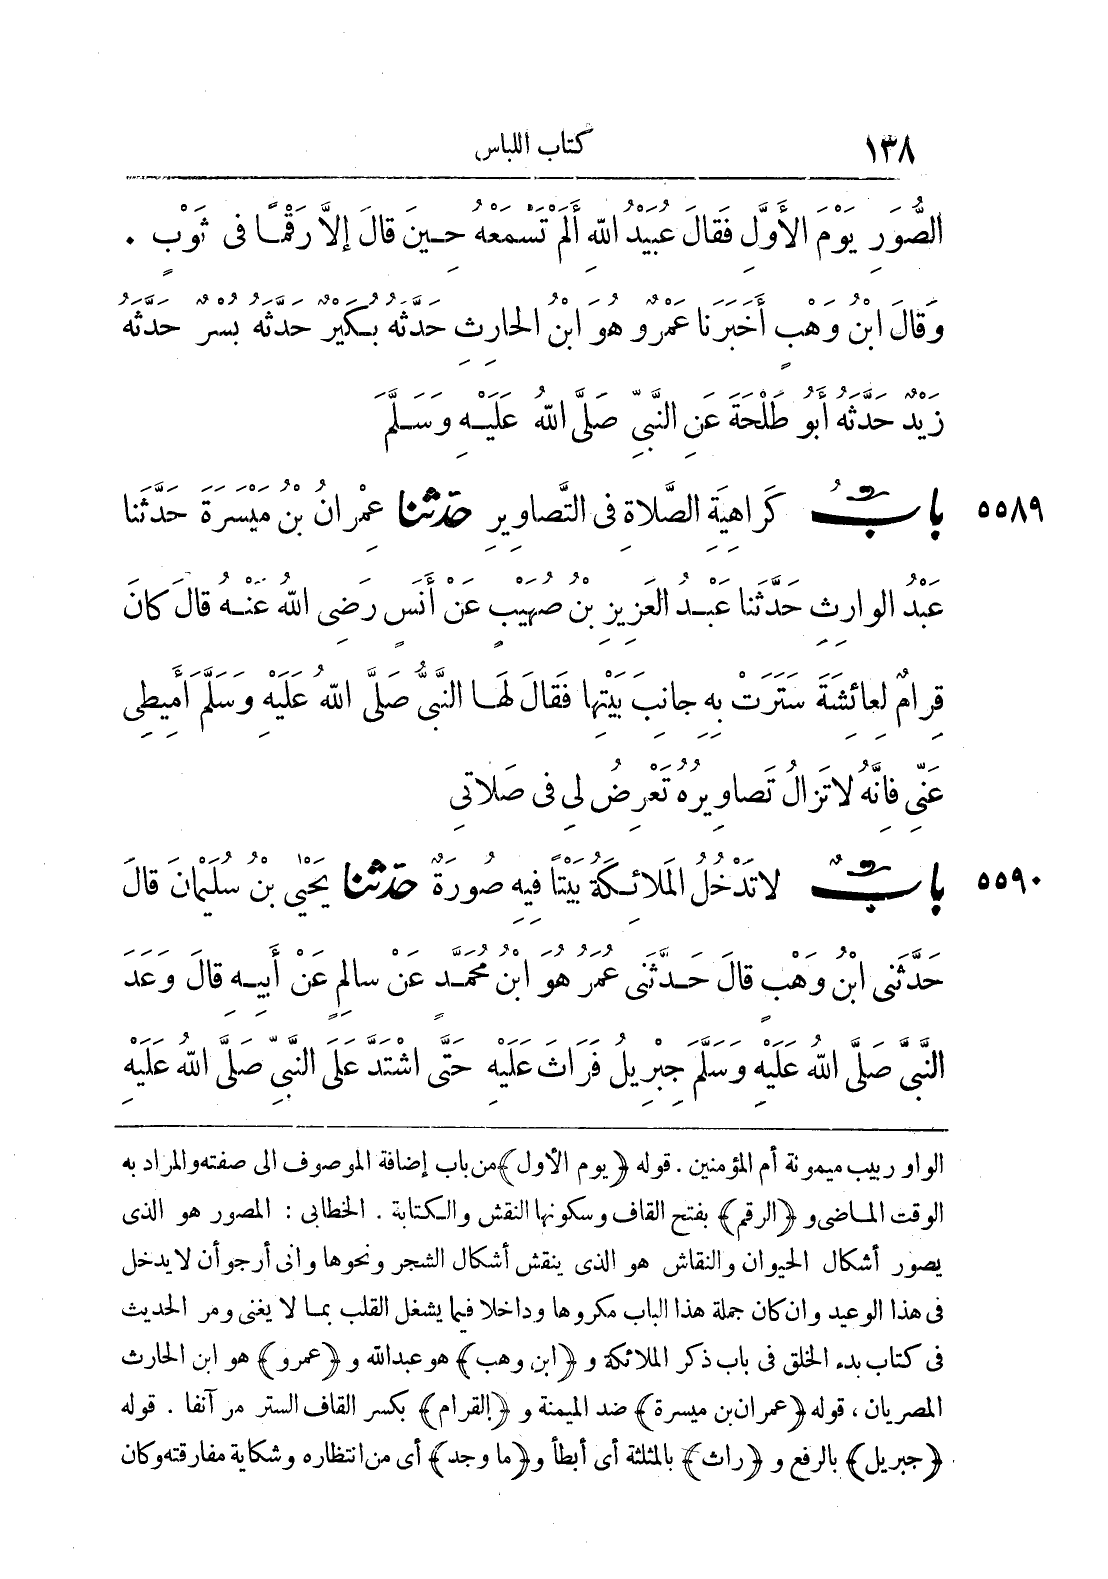 ١٣٨ كتاب اللباس
الصُّوَرِ يَوْمَ الأَوَّلِ فَقَالَ عُبَيْدُ اللهِ أَلَمْ تَسْمَعْهُ حِينَ قَالَ إِلاَّ رَقْمًا فى ثَوْبٍ .
وَقَالَ ابْنُ وَهْبٍ أَخْبَرَنَا عَمْرٌو هُوَ ابْنُ الحَارِثِ حَدَّثَهُ بُكَيْرٌ حَدَّثَهُ بُسْرٌ حَدَّثَهُ
زَيْدٌ حَدَّثَهُ أَبُو طَلْحَةَ عَنِ النَّبِيِّ صَلَّى اللهُ عَلَيْهِ وَسَلَّمَ
٥٥٨٩ بابُ كَرَاهِيَةِ الصَّلاةِ فى التَّصاوِيرِ حدّثنا عِمْرانُ بْنُ مَيْسَرَةَ حَدَّثَنا
عَبْدُ الوارِثِ حَدَّثَنا عَبْدُ العَزِيزِ بْنُ صُهَيْبٍ عَنْ أَنَسٍ رَضِىَ اللهُ عَنْهُ قالَ كانَ
قِرامٌ لِعائِشَةَ سَتَرَتْ بِهِ جانِبَ بَيْتِها فَقَالَ لَهَا النَّبِىُّ صَلَّى اللهُ عَلَيْهِ وَسَلَّمَ أَمِيطِى
عَنِّى فَانَّهُ لاتَزَالُ تَصاوِيرُهُ تَعْرِضُ لِى فى صَلاتِى
٥٥٩٠ بابٌ لاتَدْخُلُ المَلائِكَةُ بَيْتًا فِيهِ صُورَةٌ حدّثنا يَحْيىٰ بْنُ سُلَيْمانَ قالَ
حَدَّثَنِى ابْنُ وَهْبٍ قالَ حَدَّثَنِى عُمَرُ هُوَ ابْنُ مُحَمَّدٍ عَنْ سالِمٍ عَنْ أَبِيهِ قالَ وَعَدَ
النَّبِىَّ صَلَّى اللهُ عَلَيْهِ وَسَلَّمَ جِبْرِيلُ فَرَاثَ عَلَيْهِ حَتَّى اشْتَدَّ عَلَى النَّبِىِّ صَلَّى اللهُ عَلَيْهِ
الواو ربيب ميمونة أم المؤمنين . قوله ﴿يوم الأول﴾ من باب إضافة الموصوف الى صفته والمراد به
الوقت الماضى و ﴿الرقم﴾ بفتح القاف وسكونها النقش والكتابة . الخطابى : المصور هو الذى
يصور أشكال الحيوان والنقاش هو الذى ينقش أشكال الشجر ونحوها وانى أرجو أن لا يدخل
فى هذا الوعيد وان كان جملة هذا الباب مكروها وداخلا فيما يشغل القلب بما لا يغنى ومر الحديث
فى كتاب بدء الخلق فى باب ذكر الملائكة و ﴿ابن وهب﴾ هو عبدالله و ﴿عمرو﴾ هو ابن الحارث
المصريان ، قوله ﴿عمران بن ميسرة﴾ ضد الميمنة و ﴿القرام﴾ بكسر القاف الستر مر آنفا . قوله
﴿جبريل﴾ بالرفع و ﴿راث﴾ بالمثلثة أى أبطأ و ﴿ما وجد﴾ أى من انتظاره وشكاية مفارقته وكان